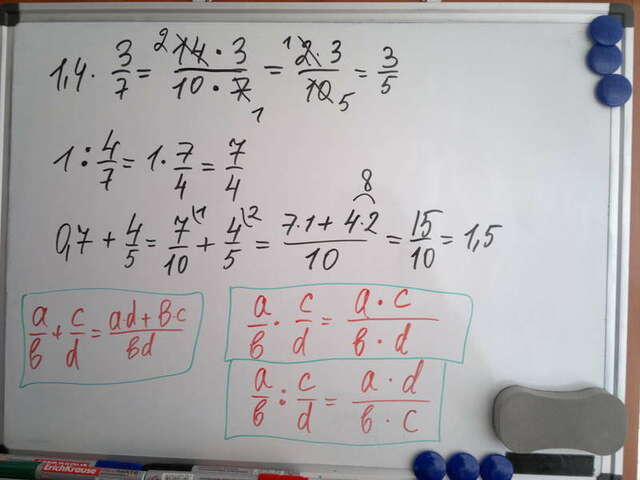 1,4 · 3/7 = 14 · 3 / 10 · 7 = 2 · 3 / 10 = 3/5
2 1 1 5
1 : 4/7 = 1 · 7/4 = 7/4
8
0,7 + 4/5 = 7/10 \1 + 4/5 \2 = 7·1 + 4·2 / 10 = 15/10 = 1,5
a/в + c/d = a·d + в·c / вd
a/в · c/d = a · c / в · d
a/в : c/d = a · d / в · c
ErichKrause